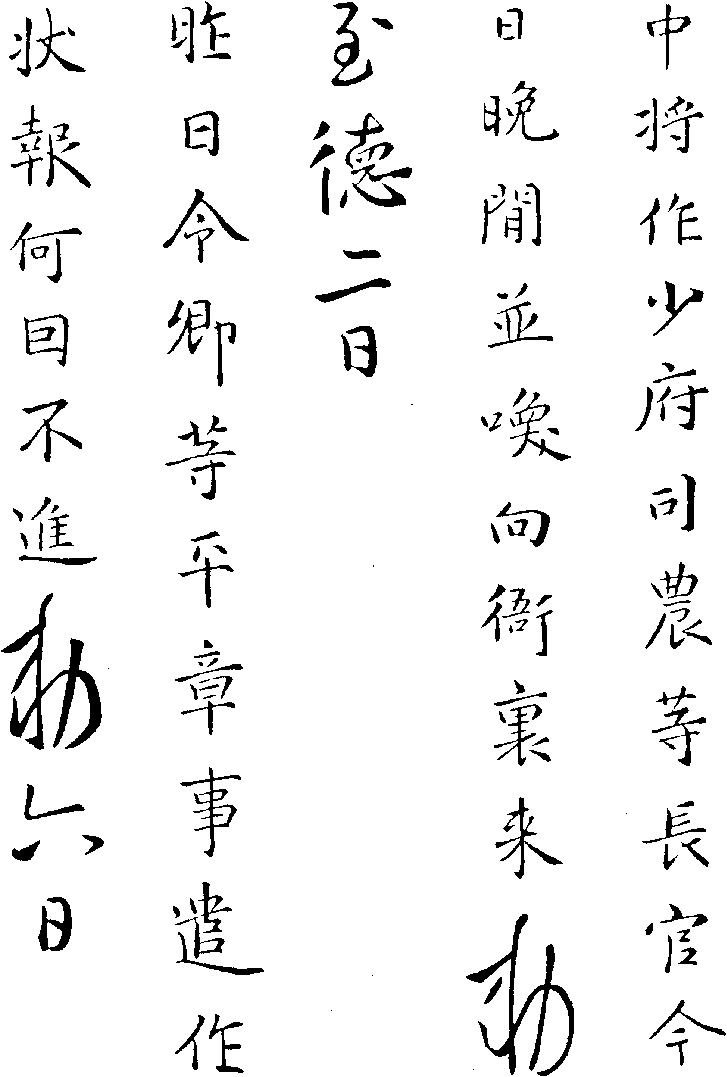 中将作少府司農等長官今
日晚閒並喚向衙裏来勅
至徳二日
昨日令卿等平章事遣作
状報何囙不進勅六日